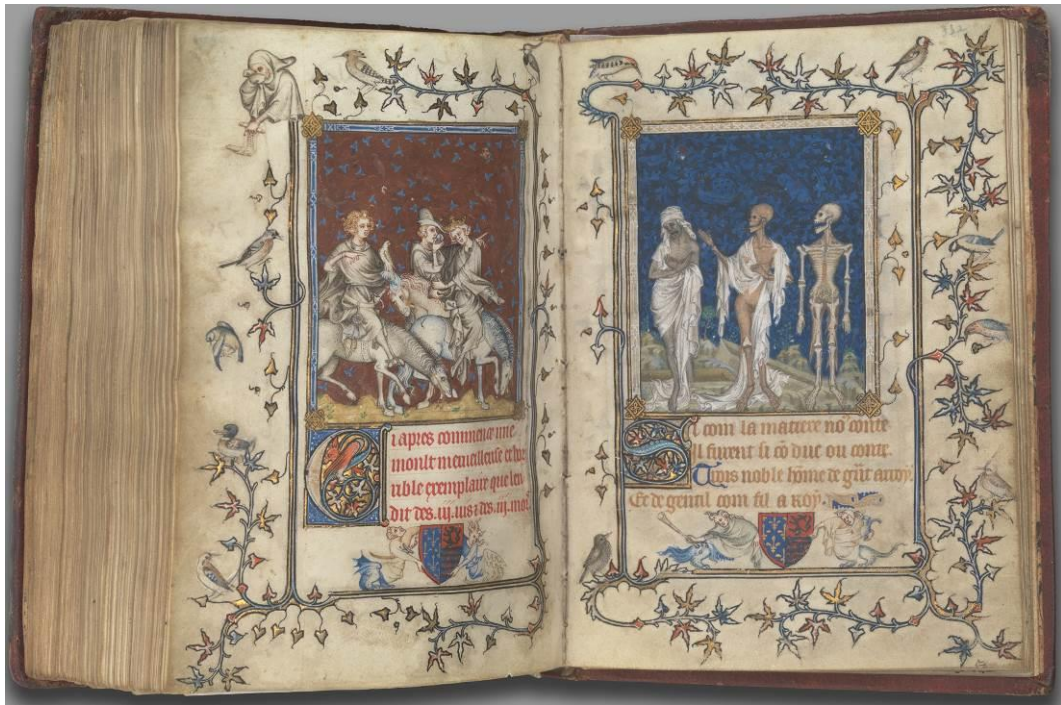 Ci apres commence une
moult merveilleuse et hor
rible exemplaire que len
dit des .iij. vis ⁊ des .iij. mors
332
Si com la matiere nō conte
Il furent si cō duc ou conte.
Trois noble hōme de
Et de gentil com fil a roy.